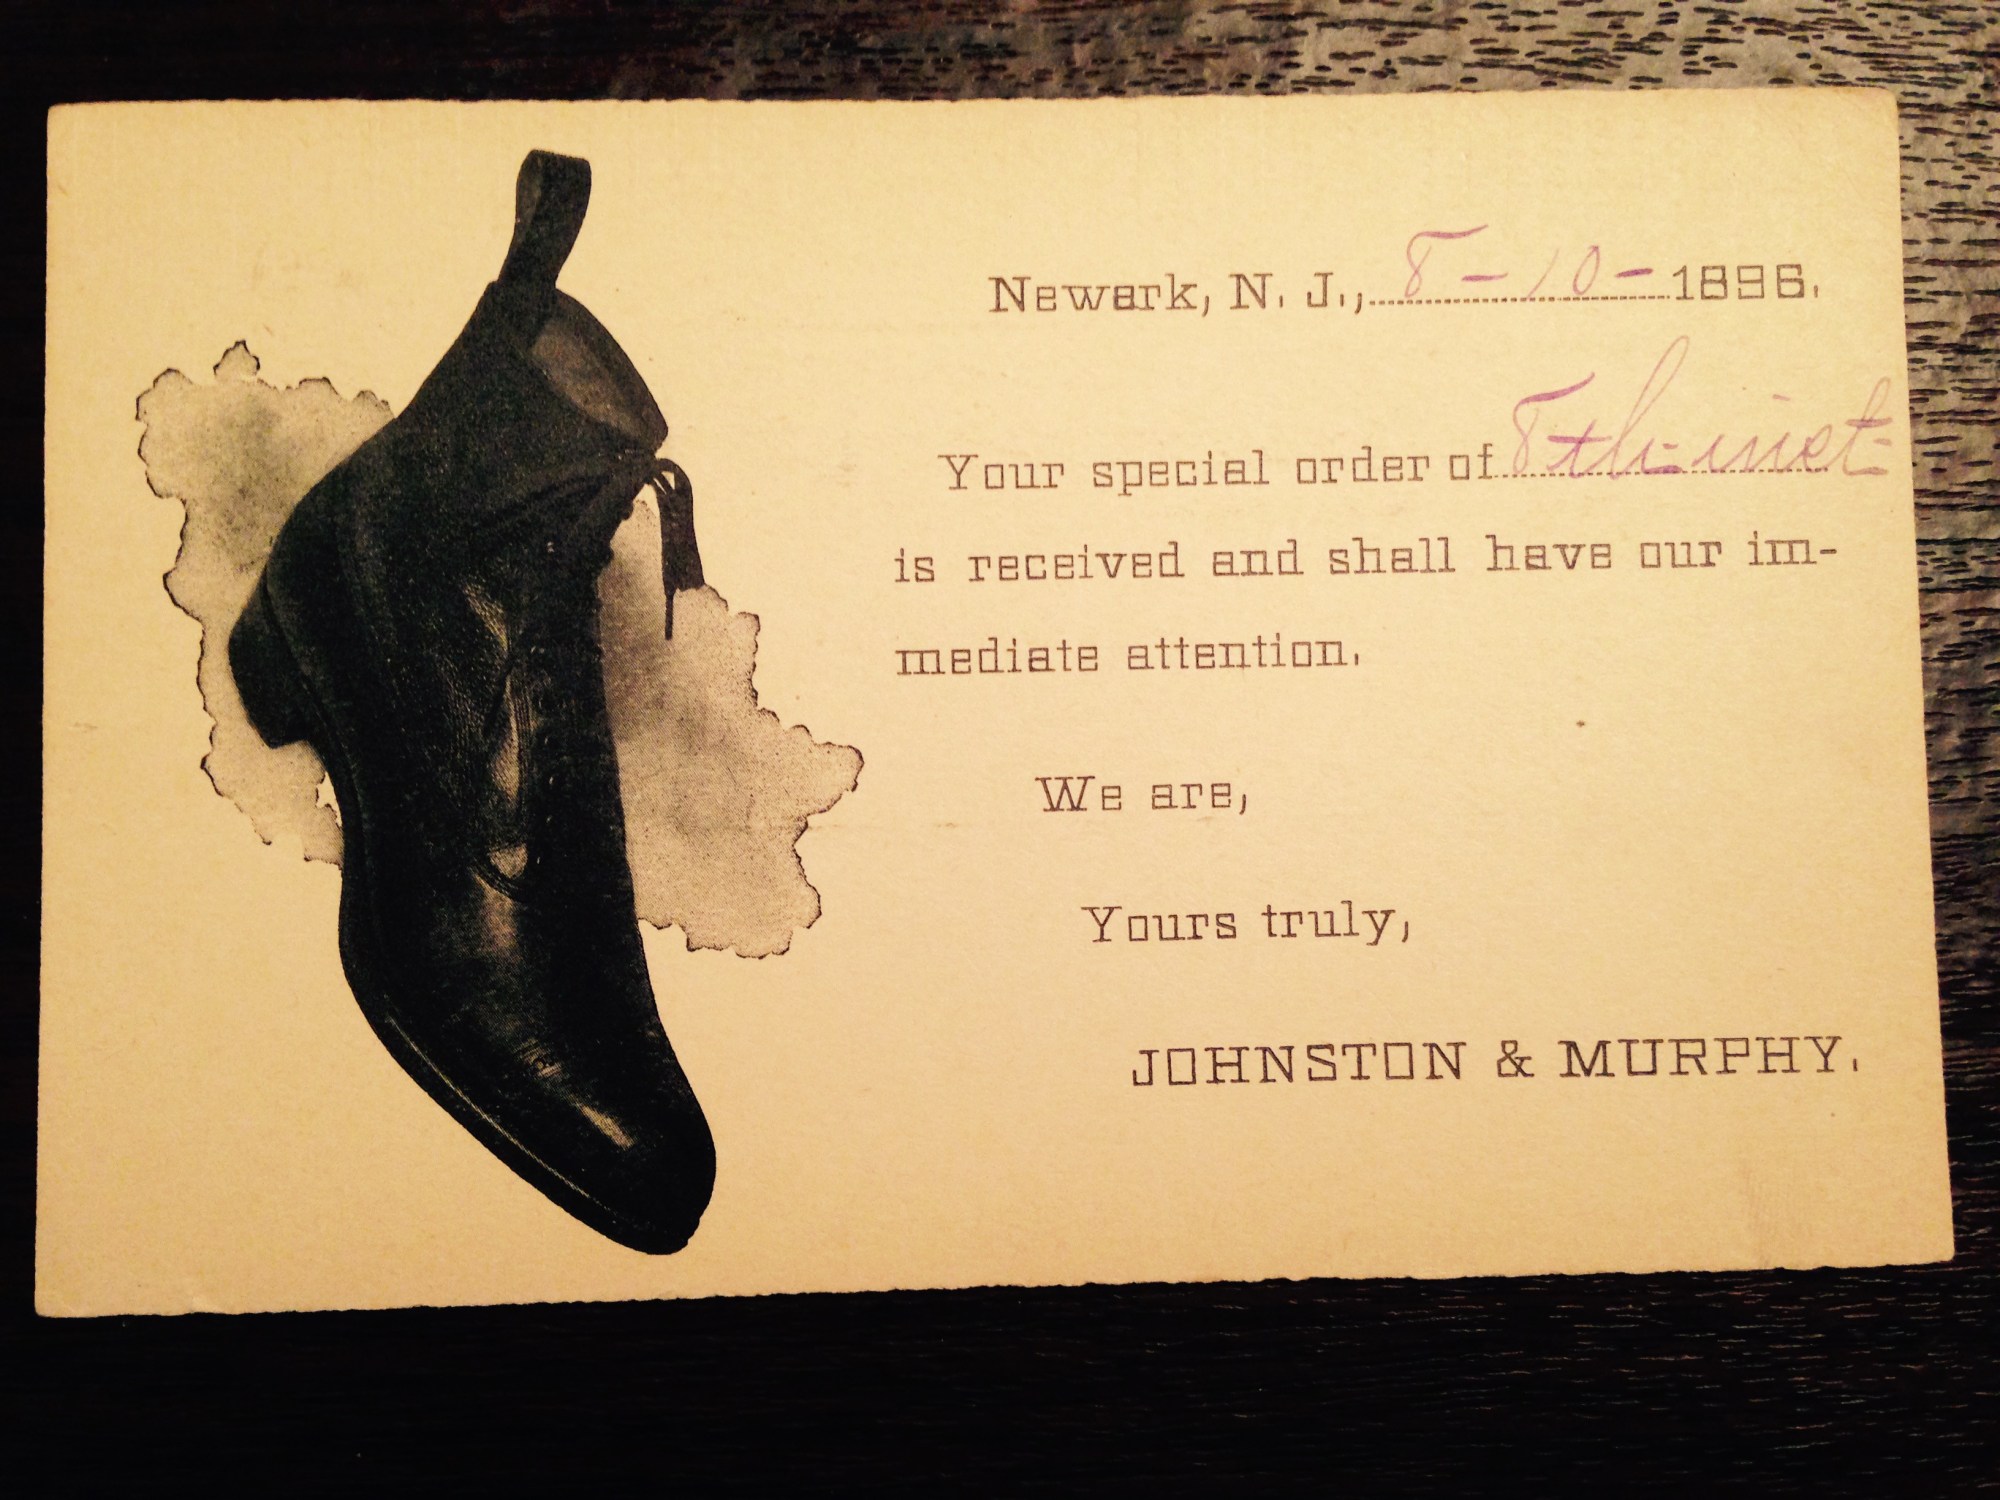 Newark, N. J., 8-10-1896.
Your special order of 8th inst
is received and shall have our im-
mediate attention.
We are,
Yours truly,
JOHNSTON & MURPHY.